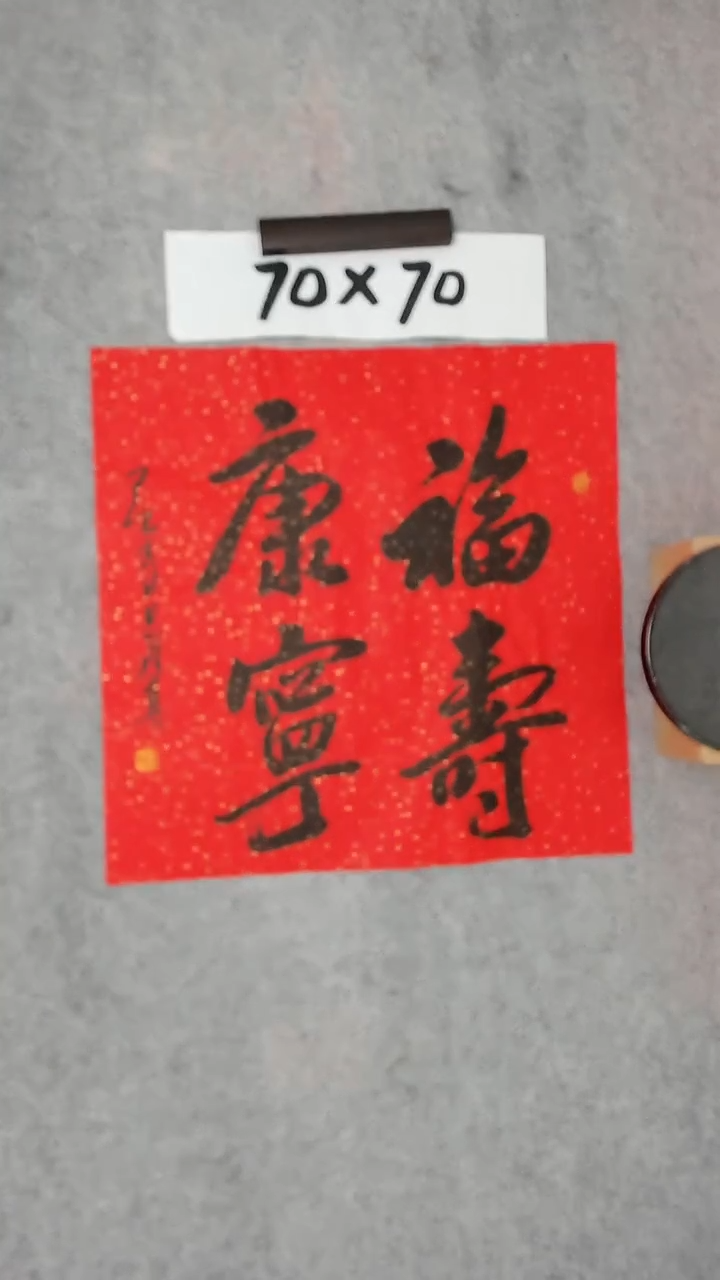 70×70
福壽
康寧